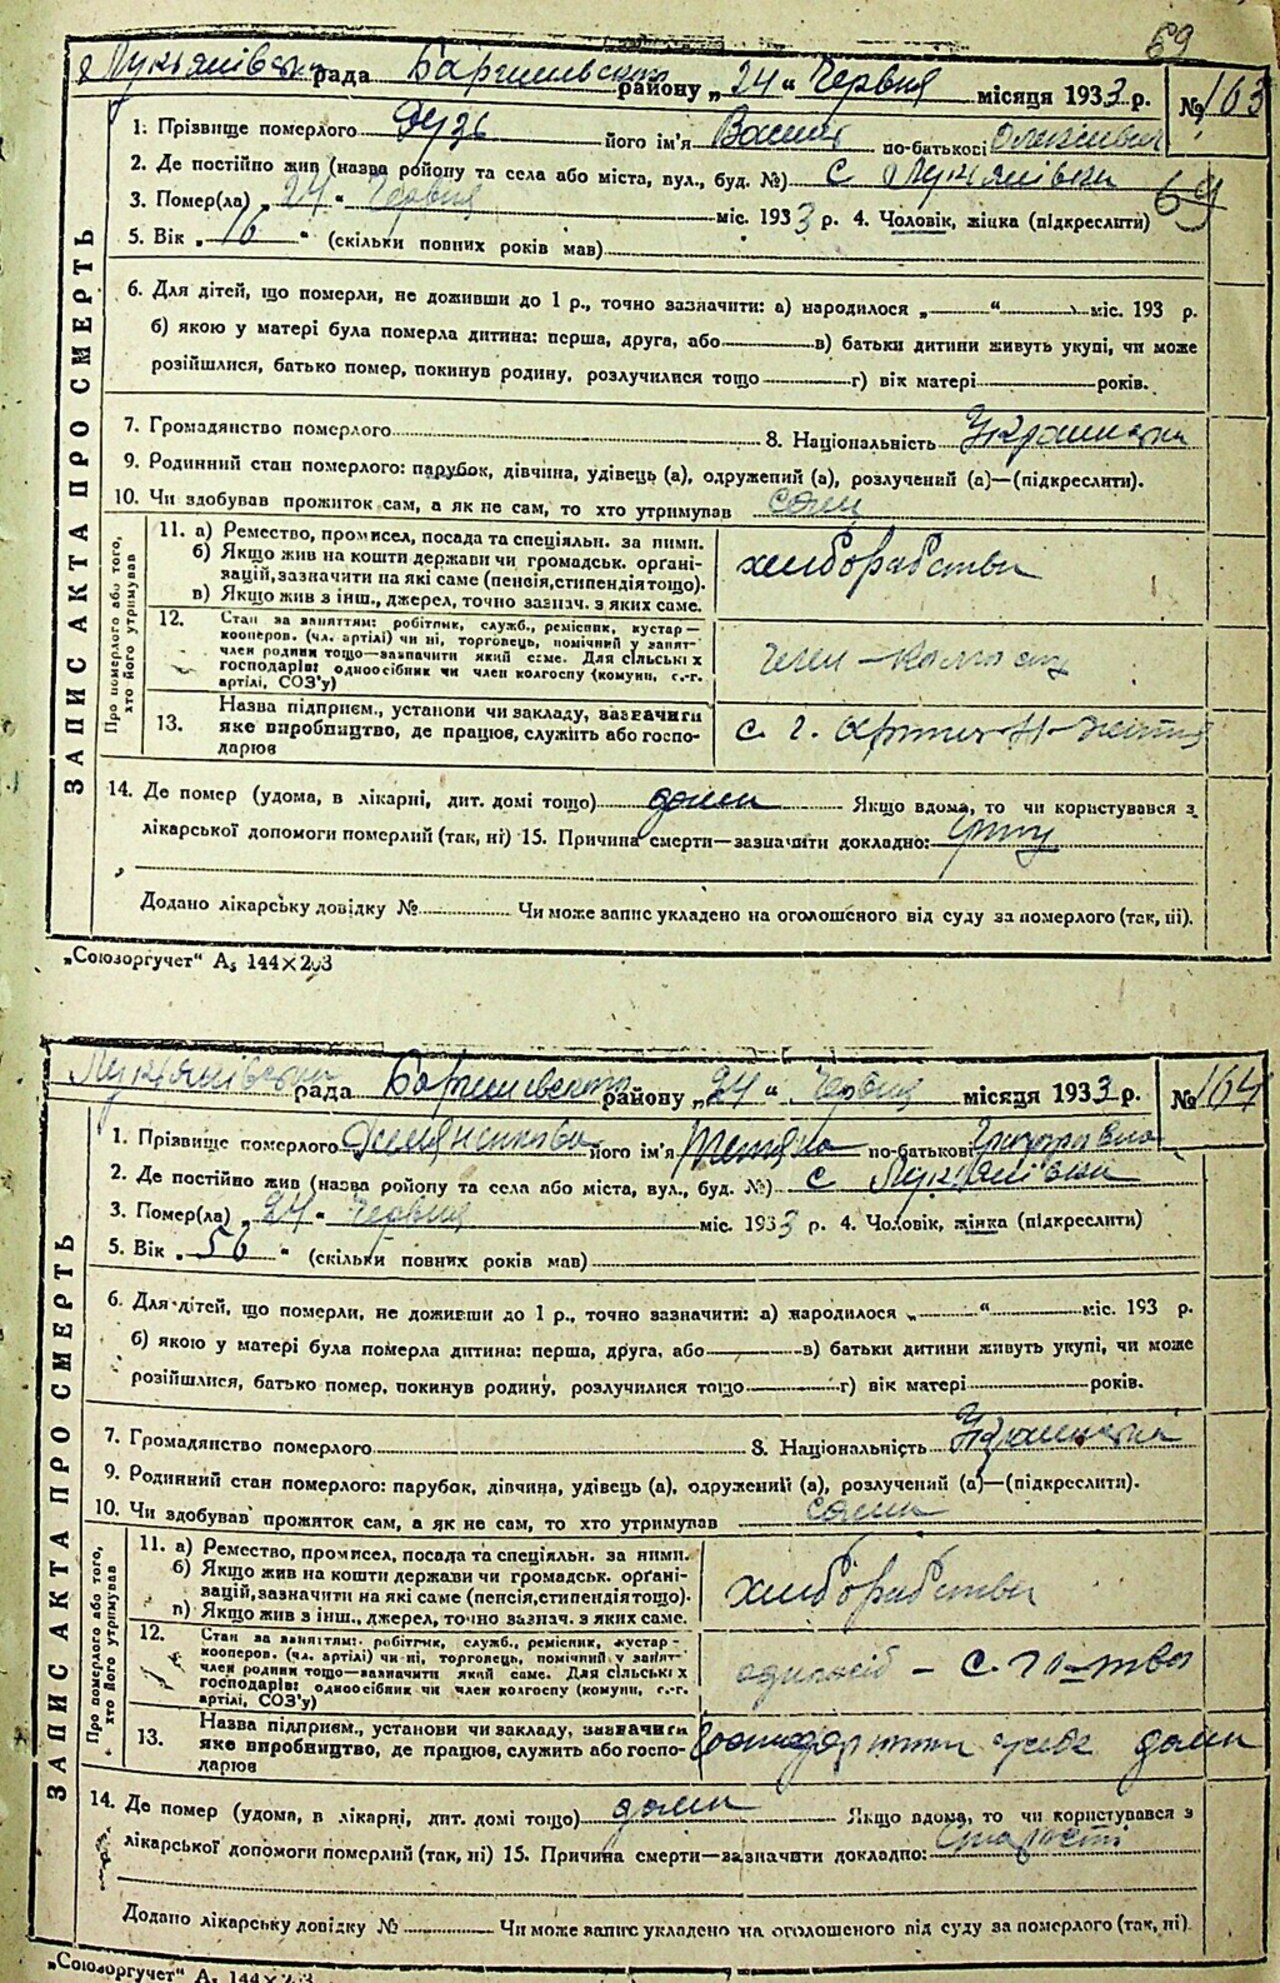 69
Лукьянівська рада Баришевського району „24“ Червня місяця 1933 р. № 163
ЗАПИС АКТА ПРО СМЕРТЬ
1. Прізвище померлого його ім'я Василь по-батькові Олексієвич
2. Де постійно жив (назва району та села або міста, вул., буд. №) с Лукянівки
69
3. Помер(ла) „24“ Червня міс. 1933 р. 4. Чоловік, жінка (підкреслити)
5. Вік „16“ (скільки повних років мав)
6. Для дітей, що померли, не доживши до 1 р., точно зазначити: а) народилося „ “ міс. 193 р.
б) якою у матері була померла дитина: перша, друга, або в) батьки дитини живуть укупі, чи може
розійшлися, батько помер, покинув родину, розлучилися тощо г) вік матері років.
7. Громадянство померлого 8. Національність
9. Родинний стан померлого: парубок, дівчина, удівець (а), одружений (а), розлучений (а)—(підкреслити).
10. Чи здобував прожиток сам, а як не сам, то хто утримував сам
Про померлого або того, хто його утримував
11. а) Ремество, промисел, посада та спеціяльн. за ними.
б) Якщо жив на кошти держави чи громадськ. орґані-
зацій, зазначити на які саме (пенсія, стипендія тощо).
в) Якщо жив з інш., джерел, точно зазнач. з яких саме.
хліборобство
12. Стан за заняттям: робітник, служб., ремісник, кустар—
кооперов. (чл. артілі) чи ні, торговець, помічний у занят-
член родини тощо—зазначити який саме. Для сільських
господарів: одноосібник чи член колгоспу (комуни, с.-г.
артілі, СОЗ'у)
член-колгоспу
13. Назва підприєм., установи чи закладу, зазначити
яке виробництво, де працює, служить або госпо-
дарює
с. г. Артиль Н-життя
14. Де помер (удома, в лікарні, дит. домі тощо) дома Якщо вдома, то чи користувався з
лікарської допомоги померлий (так, ні) 15. Причина смерти—зазначити докладно:
Додано лікарську довідку № Чи може запис укладено на оголошеного від суду за померлого (так, ні).
„Союзоргучет“ А5 144×203
Лукьянівська рада Баришевського району „24“ Червня місяця 1933 р. № 164
ЗАПИС АКТА ПРО СМЕРТЬ
1. Прізвище померлого Демяненкова його ім'я Тетяна по-батькові Григоровна
2. Де постійно жив (назва району та села або міста, вул., буд. №) с Лукянівки
3. Помер(ла) „24“ Червня міс. 1933 р. 4. Чоловік, жінка (підкреслити)
5. Вік „56“ (скільки повних років мав)
6. Для дітей, що померли, не доживши до 1 р., точно зазначити: а) народилося „ “ міс. 193 р.
б) якою у матері була померла дитина: перша, друга, або в) батьки дитини живуть укупі, чи може
розійшлися, батько помер, покинув родину, розлучилися тощо г) вік матері років.
7. Громадянство померлого 8. Національність
9. Родинний стан померлого: парубок, дівчина, удівець (а), одружений (а), розлучений (а)—(підкреслити).
10. Чи здобував прожиток сам, а як не сам, то хто утримував сама
Про померлого або того, хто його утримував
11. а) Ремество, промисел, посада та спеціяльн. за ними.
б) Якщо жив на кошти держави чи громадськ. орґані-
зацій, зазначити на які саме (пенсія, стипендія тощо).
в) Якщо жив з інш., джерел, точно зазнач. з яких саме.
хліборобство
12. Стан за заняттям: робітник, служб., ремісник, кустар-
кооперов. (чл. артілі) чи ні, торговець, помічний у занят-
член родини тощо—зазначити який саме. Для сільських
господарів: одноосібник чи член колгоспу (комуни, с.-г.
артілі, СОЗ'у)
одноосіб - с. го-тво
13. Назва підприєм., установи чи закладу, зазначити
яке виробництво, де працює, служить або госпо-
дарює
дома
14. Де помер (удома, в лікарні, дит. домі тощо) дома Якщо вдома, то чи користувався з
лікарської допомоги померлий (так, ні) 15. Причина смерти—зазначити докладно: Старості
Додано лікарську довідку № Чи може запис укладено на оголошеного від суду за померлого (так, ні)
„Союзоргучет“ А5 144×203